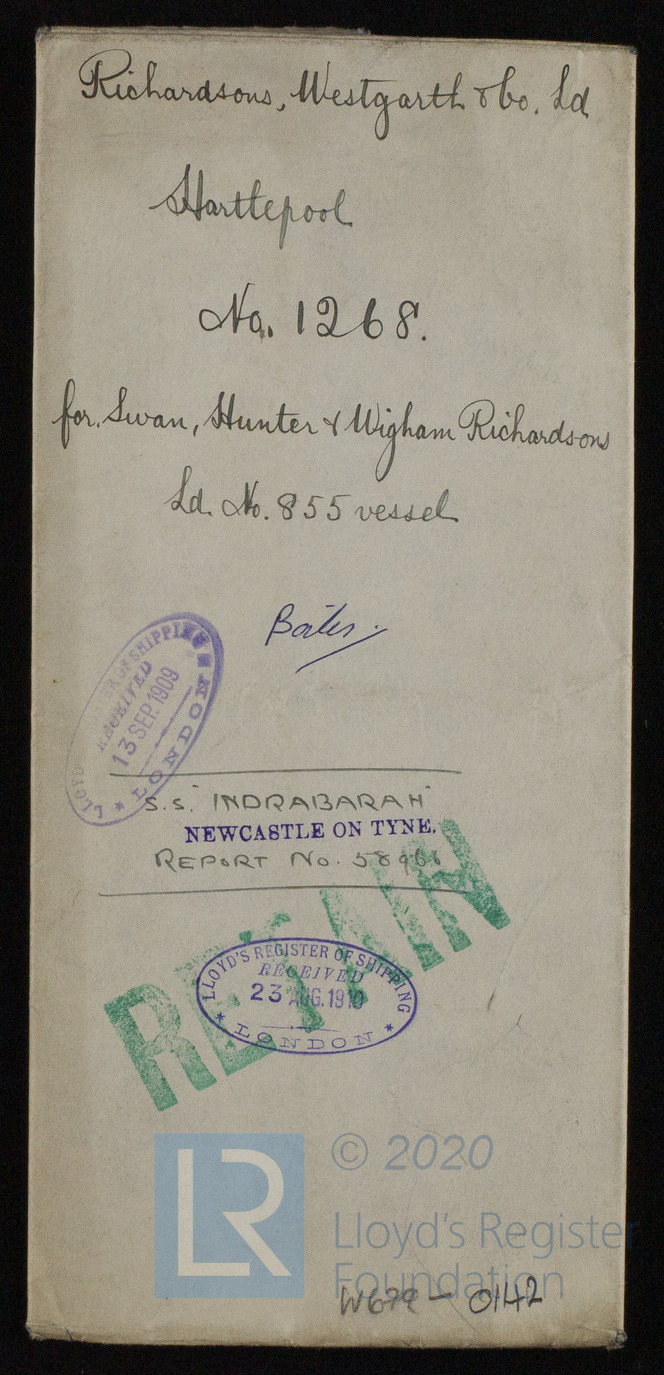 Richardsons, Westgarth & Co. Ld
Hartlepool
No. 1268.
for Swan, Hunter & Wigham Richardsons
Ld. No. 855 vessel
LLOYD'S REGISTER OF SHIPPING
RECEIVED
13 SEP. 1909
LONDON
S.S. "INDRABARAH"
NEWCASTLE ON TYNE.
REPORT No.
RETAIN
LLOYD'S REGISTER OF SHIPPING
RECEIVED
23 AUG. 1910
LONDON
LR
© 2020
Lloyd's Register
Foundation
W679 - 0142